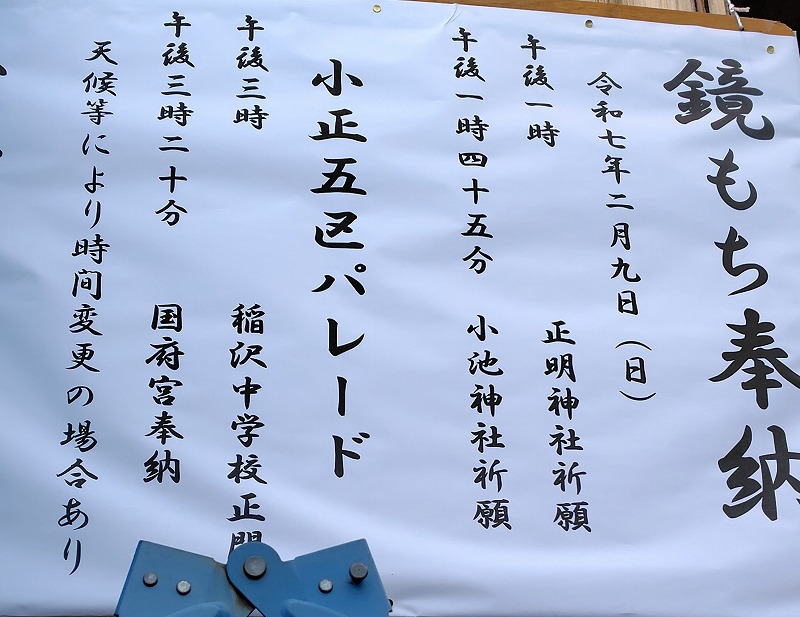 鏡もち奉納
令和七年二月九日（日）
午後一時　正明神社祈願
午後一時四十五分　小池神社祈願
小正五区パレード
午後三時　稲沢中学校正門
午後三時二十分　国府宮奉納
天候等により時間変更の場合あり